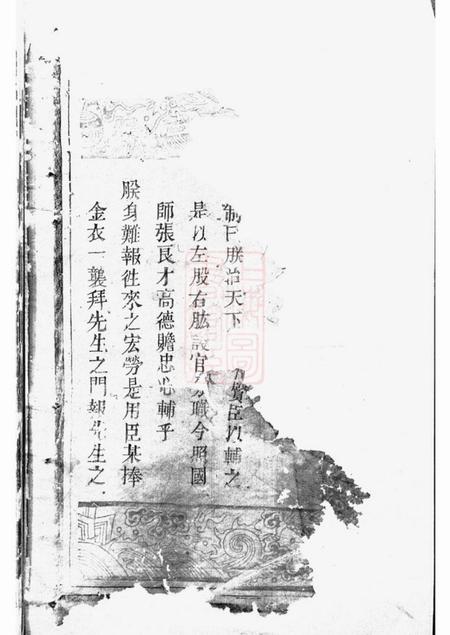 制曰朕治天下 賢臣以輔之
是以左股右肱設官分職今照國
師張良才高德贍忠心輔乎
朕身難報徃來之宏勞是用臣某捧
金衣一襲拜先生之門報先生之